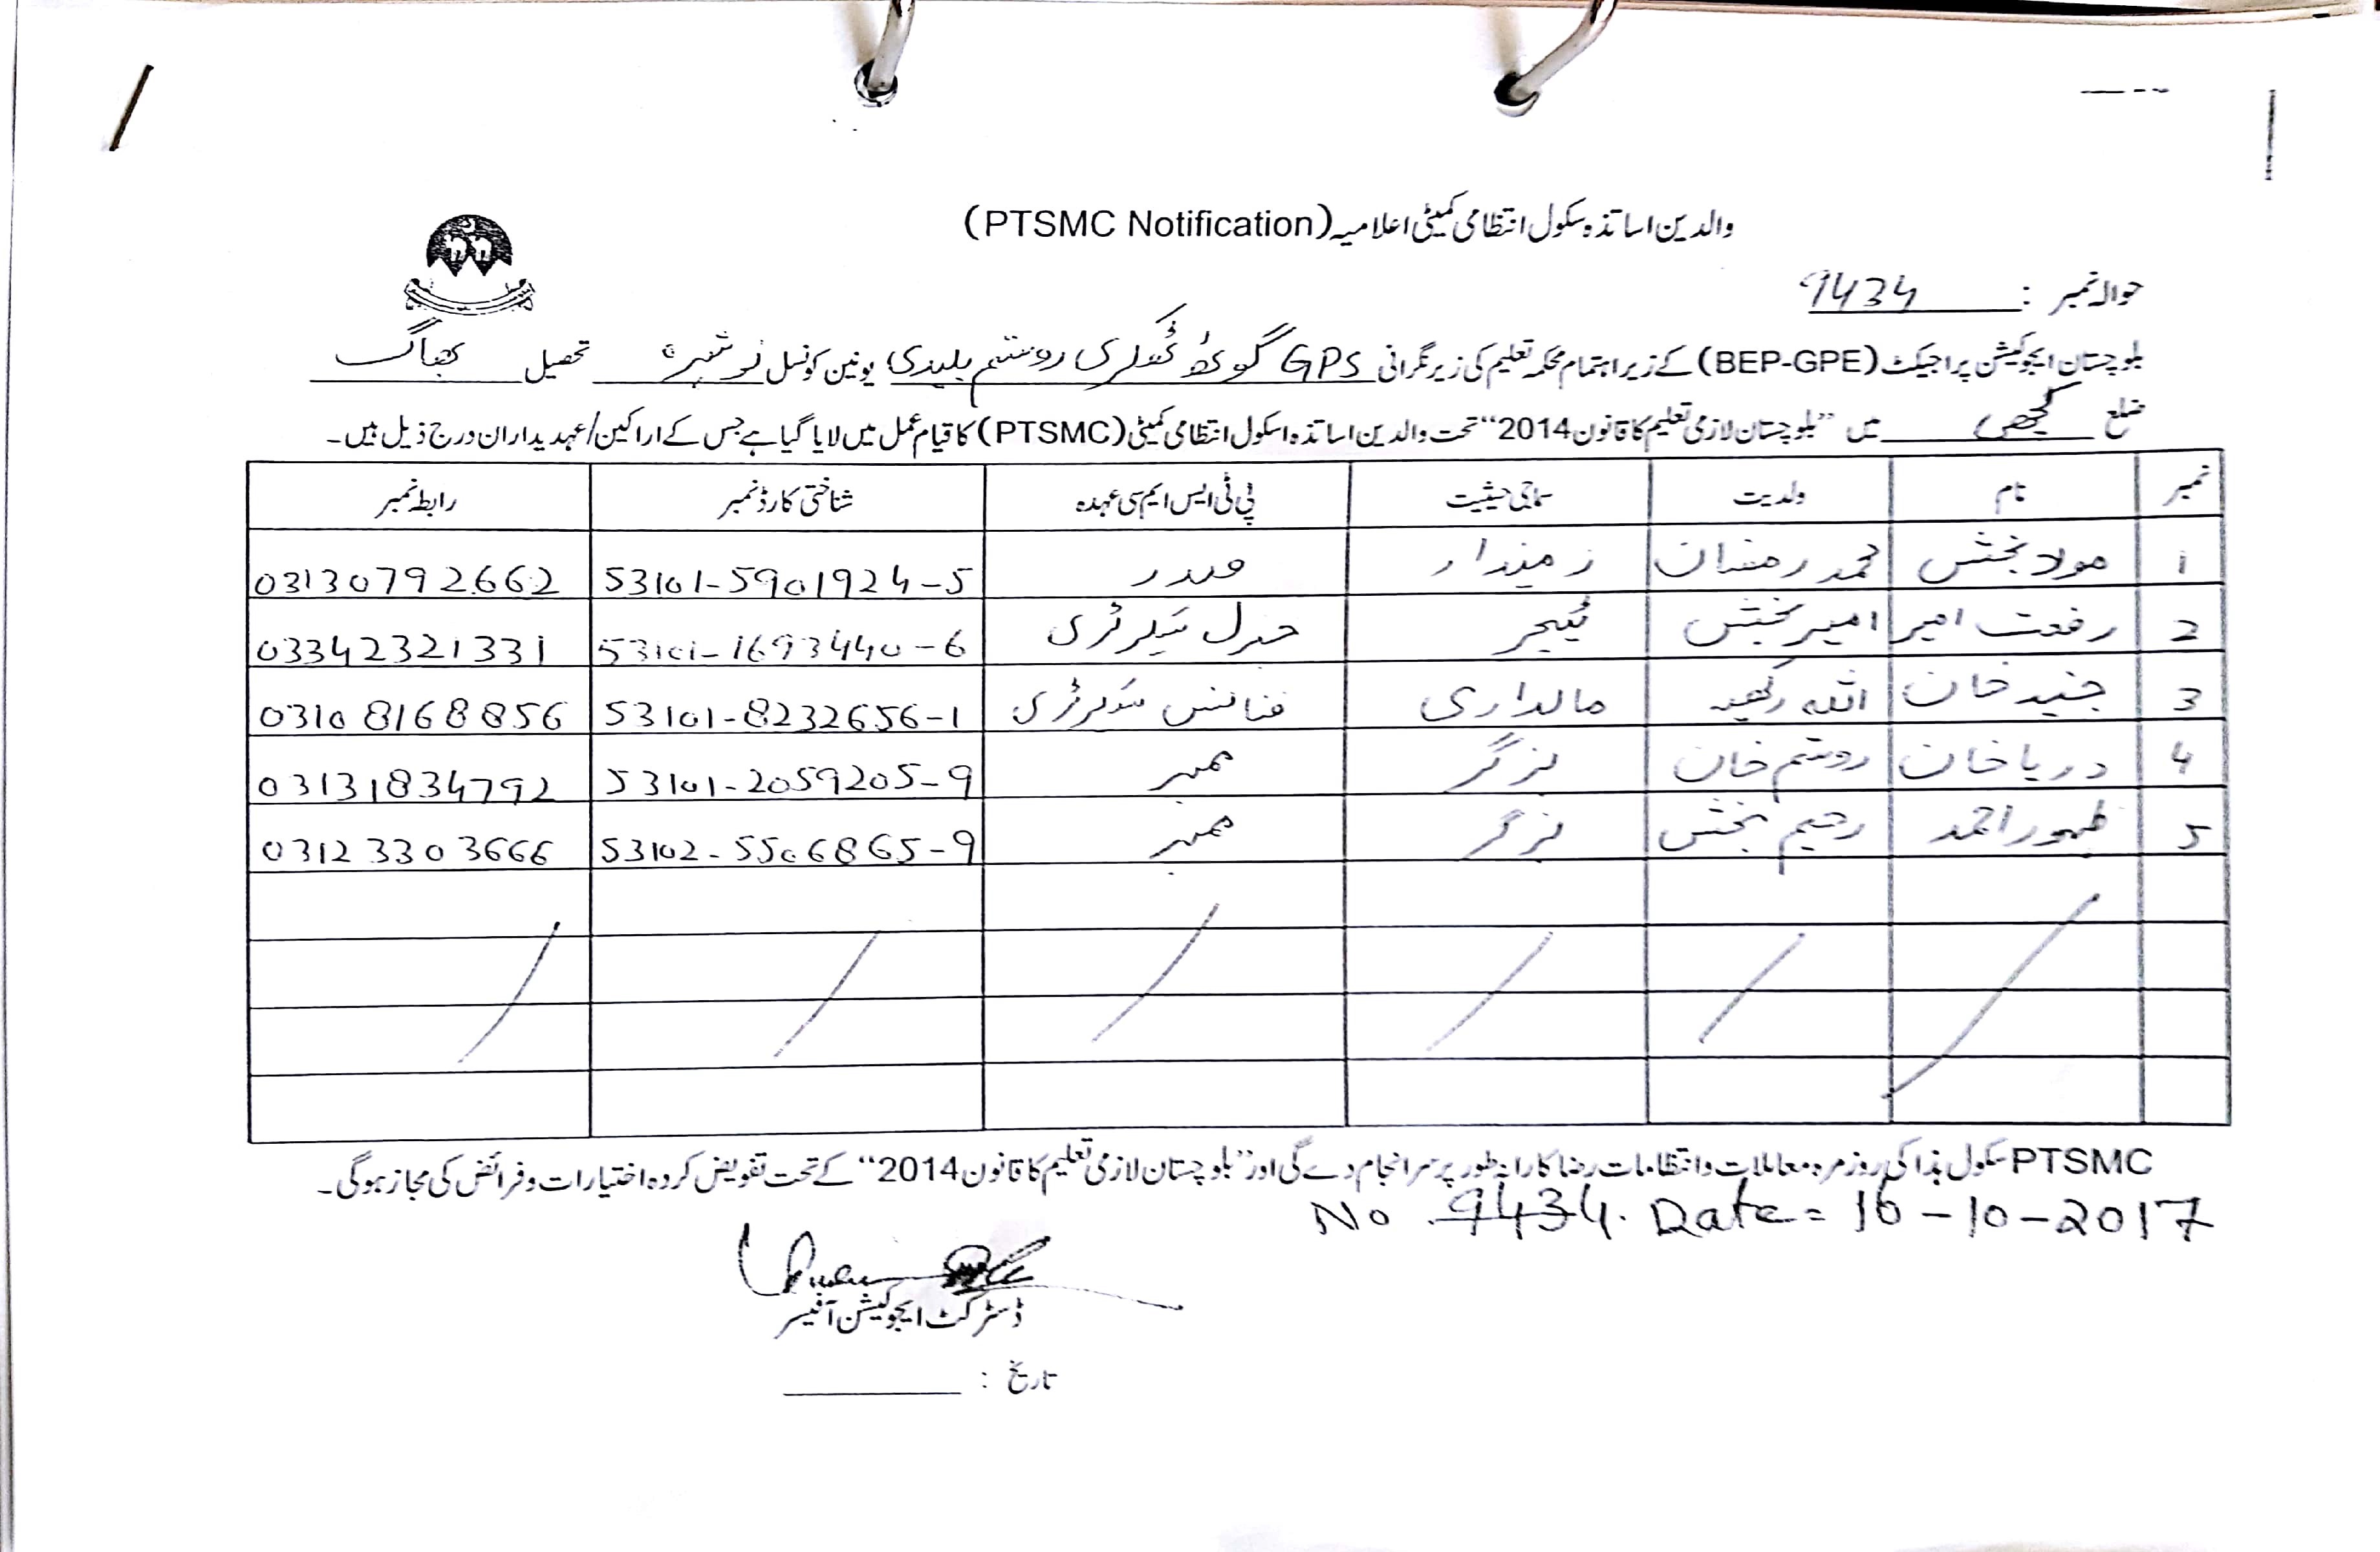 والدین اساتذہ سکول انتظامی کمیٹی اعلامیہ (PTSMC Notification)
حوالہ نمبر : 9434
بلوچستان ایجوکیشن پراجیکٹ (BEP-GPE) کے زیر اہتمام محکمہ تعلیم کی زیر نگرانی GPS گوٹھ روستم بلیدی یونین کونسل تحصیل بھاگ
ضلع کچھی میں "بلوچستان لازمی تعلیم کا قانون 2014" تحت والدین اساتذہ اسکول انتظامی کمیٹی (PTSMC) کا قیام عمل میں لایا گیا ہے جس کے اراکین/عہدیداران درج ذیل ہیں۔
نمبر نام ولدیت سماجی حیثیت پی ٹی ایس ایم سی عہدہ شناختی کارڈ نمبر رابطہ نمبر
1 مولا بخش محمد رمضان زمیندار صدر 53101-5901924-5 03130792662
2 رفعت امیر امیر بخش ٹیچر جنرل سیکرٹری 53101-1693440-6 03342321331
3 جنید خان اللہ رکھیہ مالداری فنانس سیکرٹری 53101-8232656-1 03108168856
4 دریا خان روستم خان بزگر ممبر 53101-2059205-9 03131834792
5 ظہور احمد رحیم بخش بزگر ممبر 53102-5506865-9 03123303666
PTSMC سکول ہذا کی روزمرہ معاملات و انتظامات رضا کارانہ طور پر سرانجام دے گی اور "بلوچستان لازمی تعلیم کا قانون 2014" کے تحت تفویض کردہ اختیارات و فرائض کی مجاز ہوگی۔
No 9434. Date = 16-10-2017
ڈسٹرکٹ ایجوکیشن آفیسر
تاریخ :